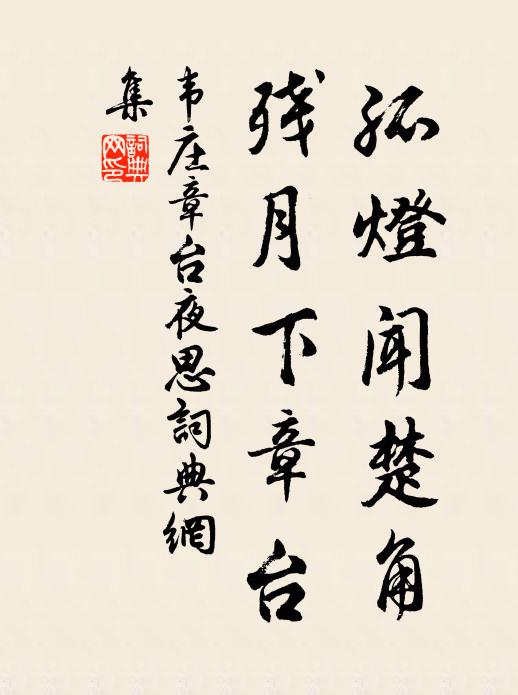 孤燈闻楚角
残月下章台
韦庄章台夜思詞典網
集
詞典网印